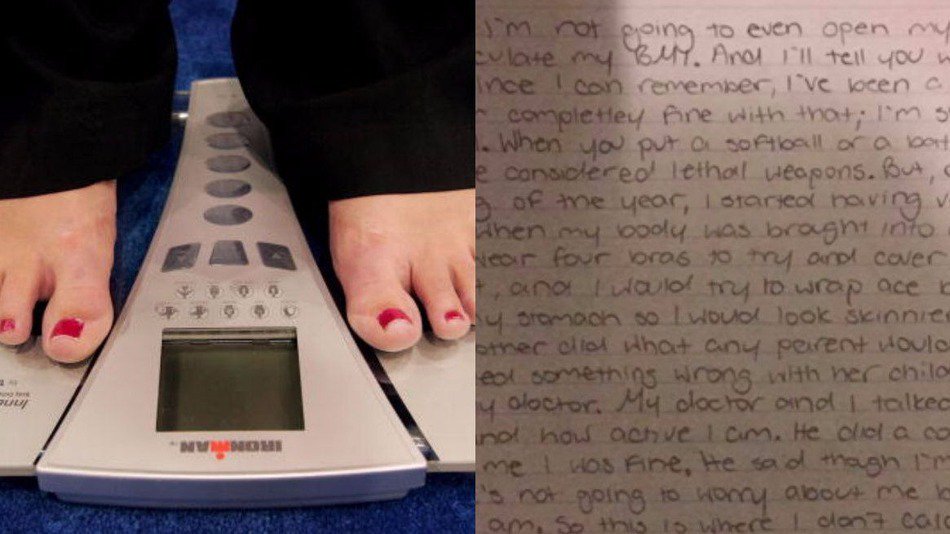 IRONMAN
I'm not going to even open my
culate my BMI. And I'll tell you w
ince I can remember, I've been a
completley fine with that; I'm s
. When you put a softball or a bat
e considered lethal weapons. But,
g of the year, I started having
when my body was brought into
wear four bras to try and cover
, and I would try to wrap ace
y stomach so I would look skinnie
other did what any parent would
ed something wrong with her child
y doctor. My doctor and I talked
and how active I am. He did a
me I was fine, He said though I'm
's not going to worry about me
am. So this is where I don't calc